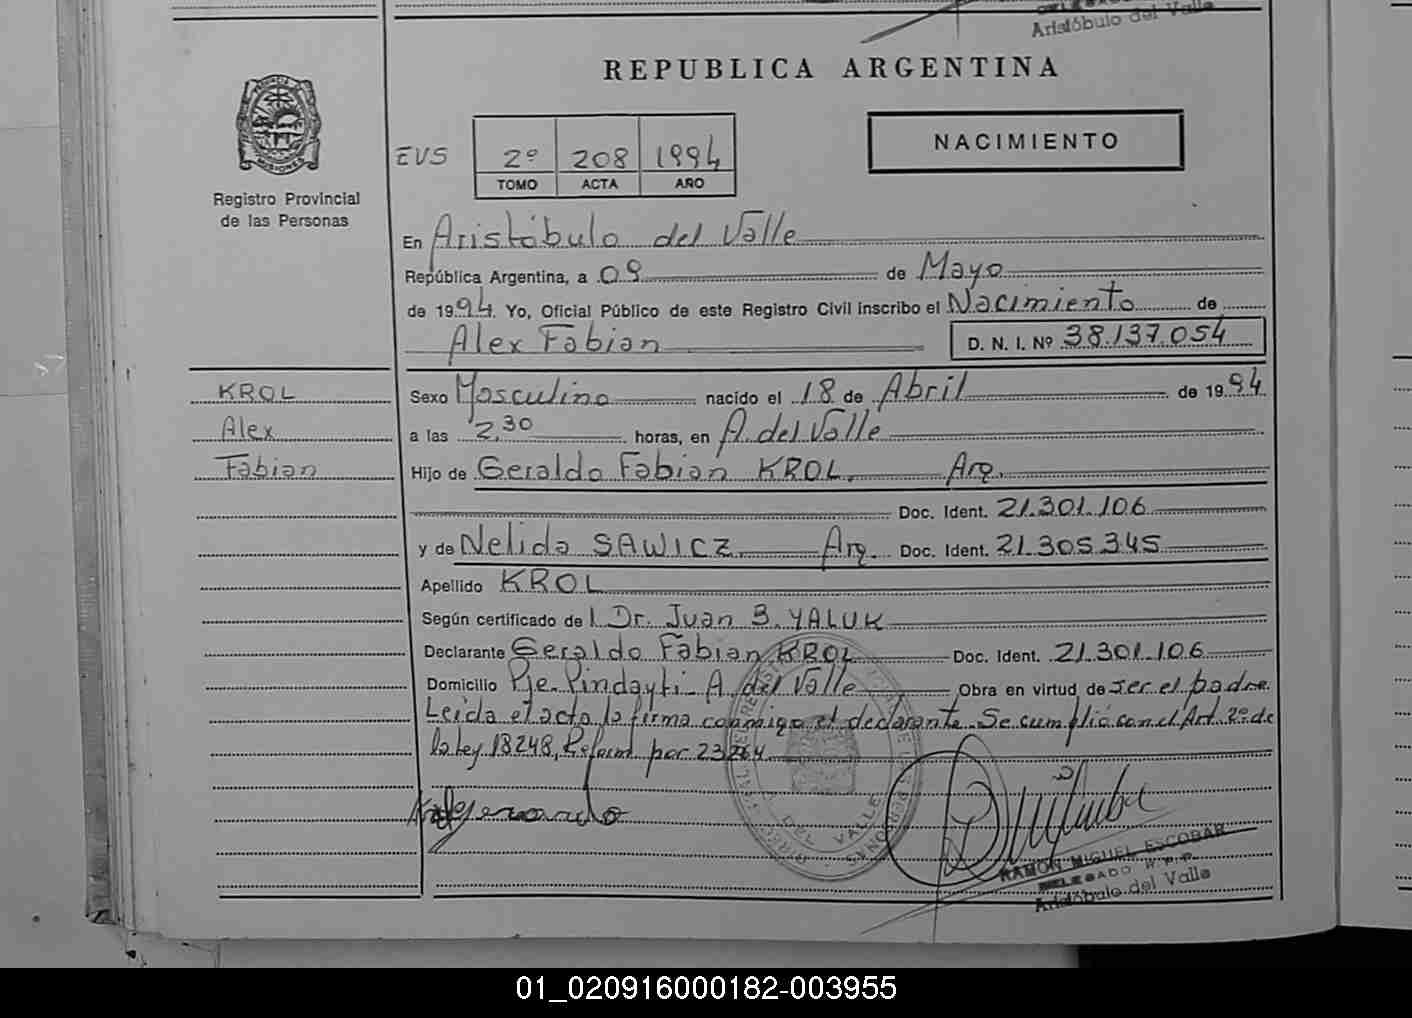 Aristóbulo del Valle
REPUBLICA ARGENTINA
MISIONES
Registro Provincial
de las Personas
EVS 2º 208 1994
TOMO ACTA AÑO
NACIMIENTO
En Aristóbulo del Valle
República Argentina, a 09 de Mayo
de 1994. Yo, Oficial Público de este Registro Civil inscribo el Nacimiento de
Alex Fabian D. N. I. Nº 38.137.054
KROL
Alex
Fabian
Sexo Masculino nacido el 18 de Abril de 1994
a las 2,30 horas, en A. del Valle
Hijo de Geraldo Fabian KROL. Arg.
Doc. Ident. 21.301.106
y de Nelida SAWICZ Arg. Doc. Ident. 21.305.345
Apellido KROL
Según certificado del Dr. Juan B. YALUK
Declarante Geraldo Fabian KROL Doc. Ident. 21.301.106
Domicilio Pje. Pindayti - A. del Valle Obra en virtud de ser el padre.
Leida el acta la firma conmigo el declarante. Se cumplió con el Art. 2º de
la Ley 18248, Reform por 23264
DEL VALLE
RAMON MIGUEL ESCOBAR
DELEGADO R.P.P.
Aristóbulo del Valle
01_020916000182-003955